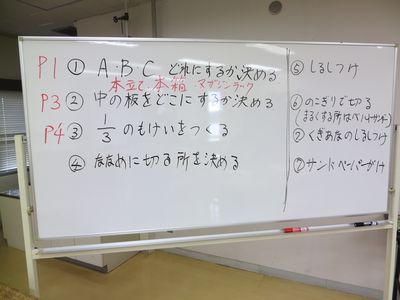 P1 ① A・B・C どれにするか決める
本立て・本箱・マガジンラック
P3 ② 中の板をどこにするか決める
P4 ③ 1/3 のもけいをつくる
④ ななめに切る所を決める
⑤ しるしつけ
⑥ のこぎりで切る
(まるくする所はベルトサンダー)
⑦ くぎあなのしるしつけ
⑦ サンドペーパーがけ